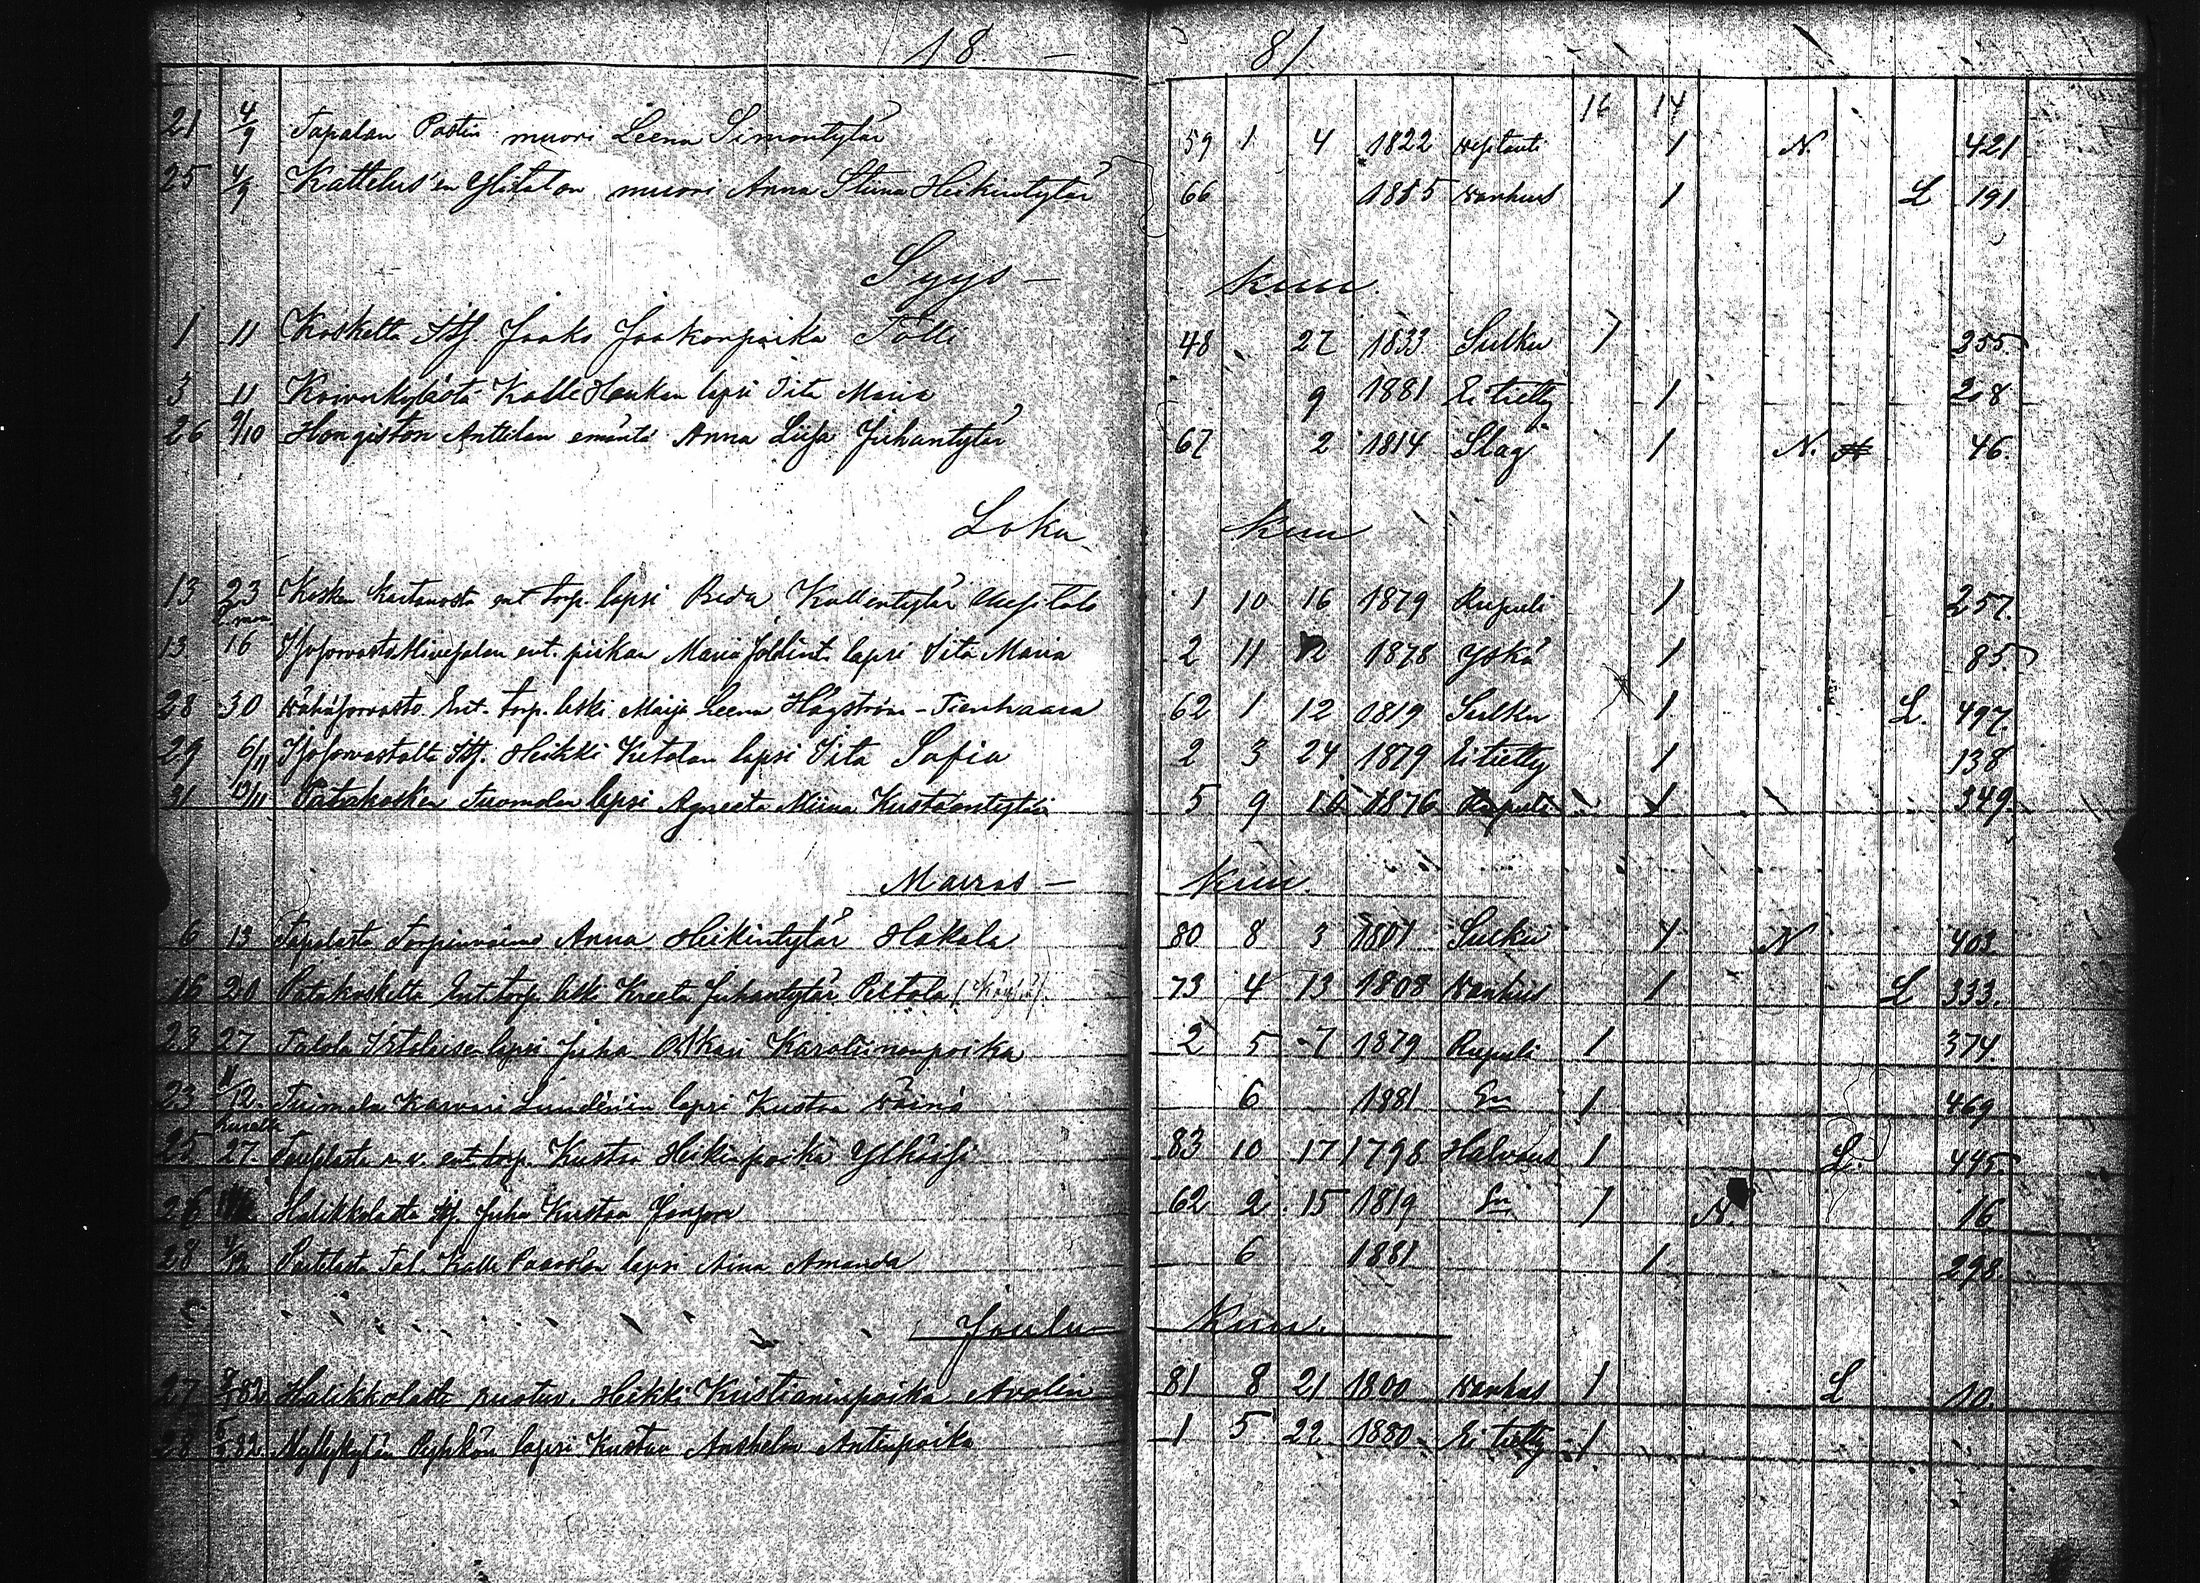 18 - 81
16 14
21 4/9 Tapalan Pastin muori Leena Simontytär 59 1 4 1822 wesitauti 1 N. 421
25 4/9 Kattelus'en Ylitalon muori Anna Stiina Heikintytär 66 1815 wanhus 1 L 191
Syys- kuu.
1 11 Koskelta Its. Jaako Jaakonpoika Tolli 48 27 1833 Sulku 1 255.
3 11 Koivukylästä Kalle Haukan lapsi Iita Maria 9 1881 Ei tietty 1 208
26 9/10 Hongiston Anttilan emäntä Anna Liisa Juhantytär 67 2 1814 Slag 1 N. 46.
Loka kuu
13 23 Kosken kartanosta ent torp. lapsi Beda Kallentytär Uusitalo 1 10 16 1879 Rupuli 1 257.
13 16 ent. piikan Maria lapsi Iita Maria 2 11 12 1878 Yskä 1 85.
28 30 Ent. torp. leski Maija Leena Hägström - Tienhaara 62 1 12 1819 Sulku 1 L. 497.
29 6/11 Its. Heikki Ketolan lapsi Iita Sofia 2 3 24 1879 Ei tietty 1 138
31 13/11 Patakosken Tuomolan lapsi Agneeta Miina Kustaantytär 5 9 16 1876 Rupuli 1 349.
Marras - kuu.
6 13 Tapalasta Torpinvaimo Anna Heikintytär Hakala 80 8 3 1801 Sulku 1 N 403.
16 20 Patakoskelta Ent. torp. leski Kreeta Juhantytär Peltola 73 4 13 1808 wanhus 1 L 333.
23 27 lapsi Juha Oskari Karoliinanpoika 2 5 7 1879 Rupuli 1 374.
23 11/12. Tuimala Lundén'in lapsi Kustaa Wäinö 6 1881 Sn 1 469
25 27. ent. torp. Kustaa Heikinpoika 83 10 17 1798 Halvaus 1 L. 445
26 Halikkolasta Its. Juha Kustaa 62 2 15 1819 Sn 1 N. 16
28 4/12 Tal. Kalle Paavolan lapsi Aina Amanda 6 1881 1. 298.
Joulu- kuu.
27 8/1 82. Halikkolasta ruotuv. Heikki Kristianinpoika Avelin 81 8 21 1800 wanhus 1 L 10.
28 82. Myllykylän lapsi Kustaa Anshelm Antinpoika 1 5 22 1880 Ei tietty 1